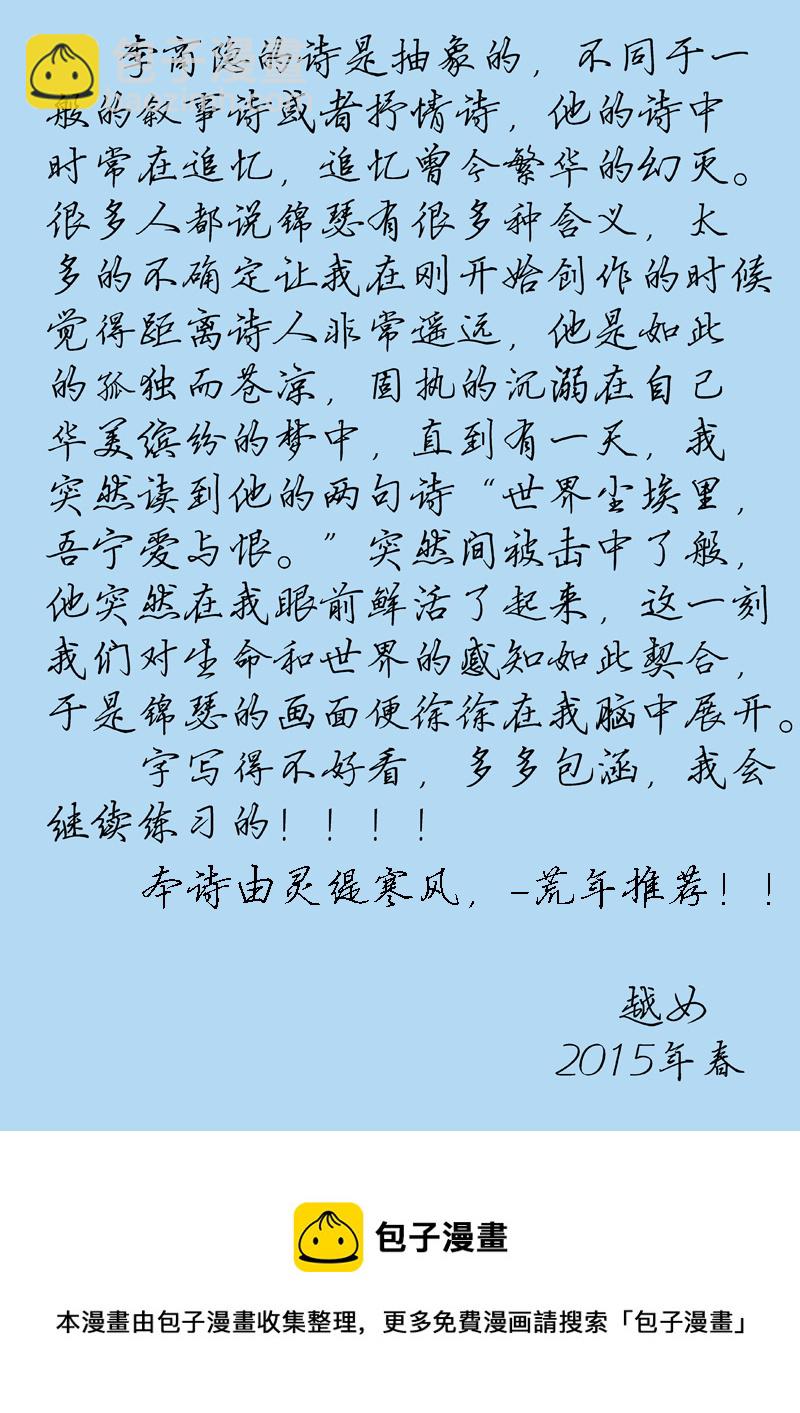 包子漫畫
baozimh.com
李商隐的诗是抽象的，不同于一
般的叙事诗或者抒情诗，他的诗中
时常在追忆，追忆曾今繁华的幻灭。
很多人都说锦瑟有很多种含义，太
多的不确定让我在刚开始创作的时候
觉得距离诗人非常遥远，他是如此
的孤独而苍凉，固执的沉溺在自己
华美缤纷的梦中，直到有一天，我
突然读到他的两句诗“世界尘埃里，
吾宁爱与恨。”突然间被击中了般，
他突然在我眼前鲜活了起来，这一刻
我们对生命和世界的感知如此契合，
于是锦瑟的画面便徐徐在我脑中展开。
字写得不好看，多多包涵，我会
继续练习的！！！！
本诗由灵缇寒风，-荒年推荐！！
越女
2015年春
包子漫畫
本漫畫由包子漫畫收集整理，更多免費漫画請搜索「包子漫畫」